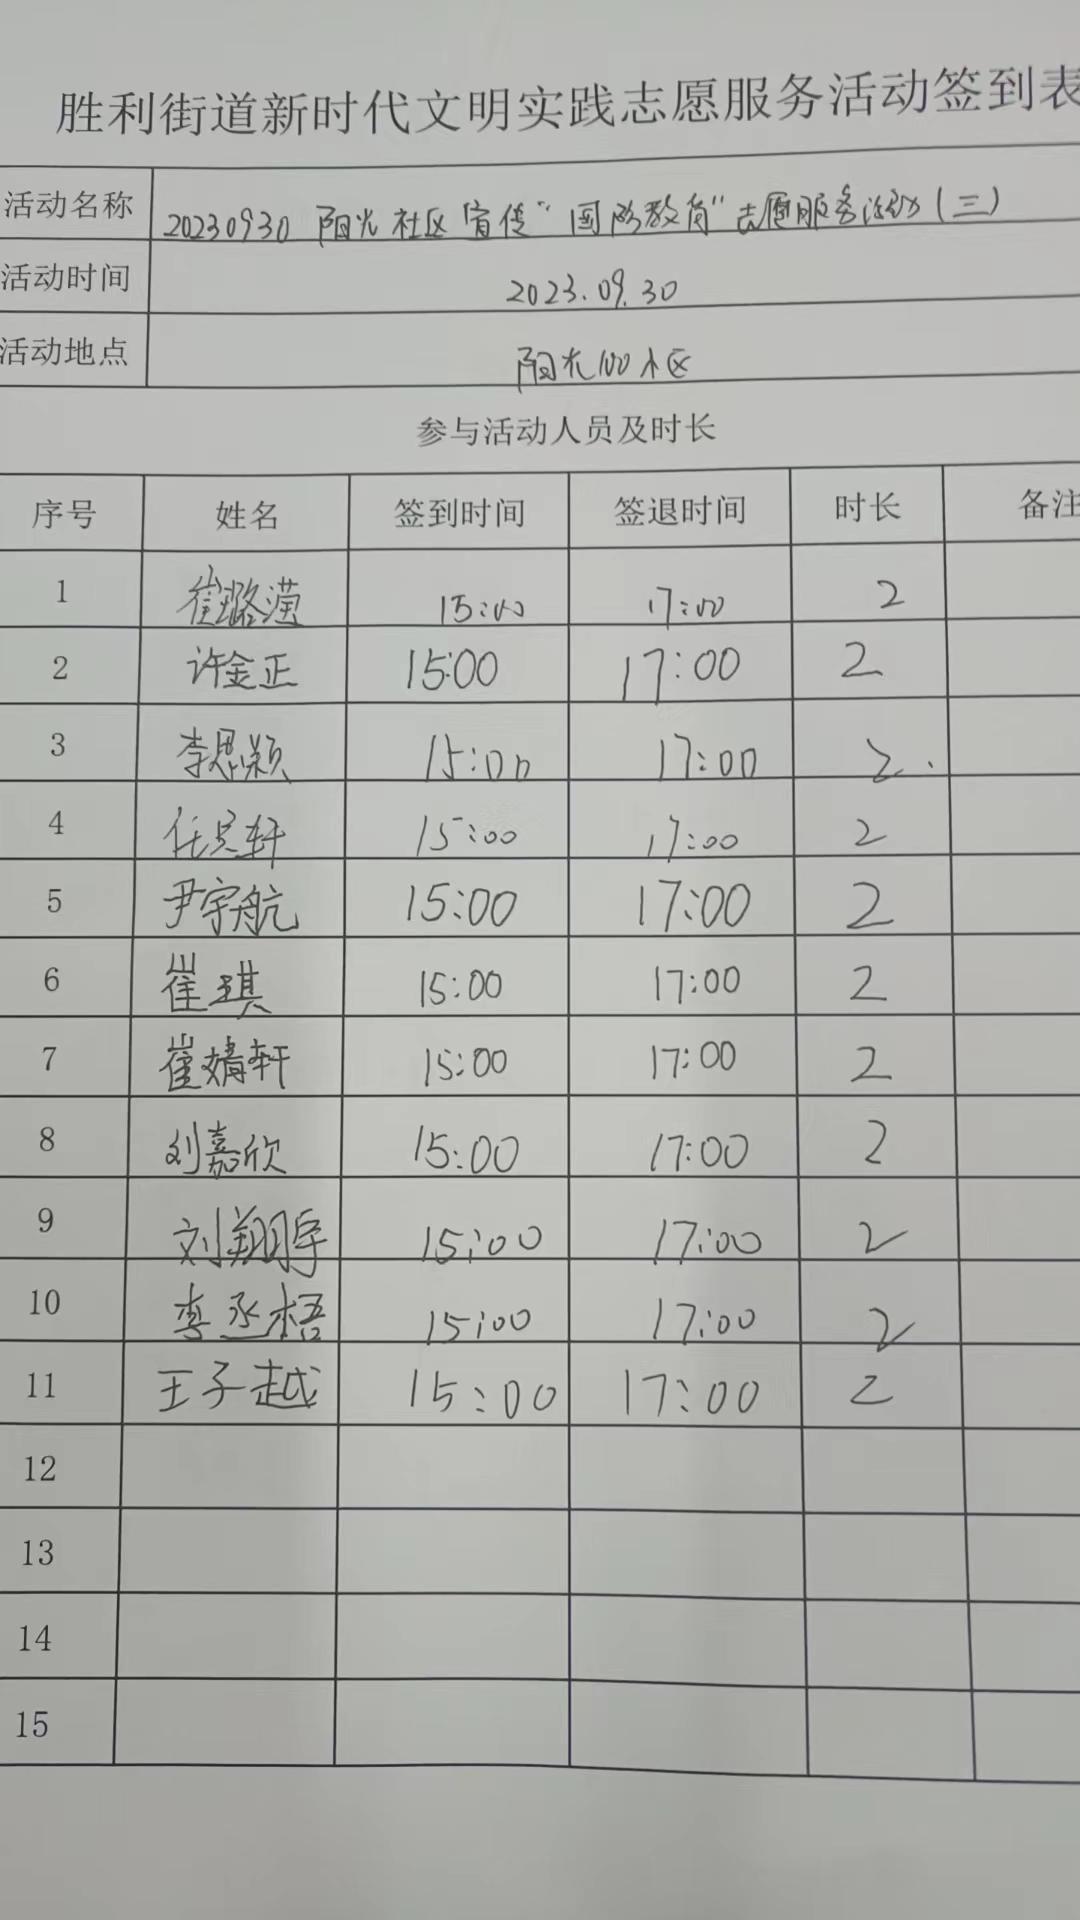 胜利街道新时代文明实践志愿服务活动签到表
活动名称 20230930 阳光社区宣传"国防教育"志愿服务活动(三)
活动时间 2023.09.30
活动地点 阳光100小区
参与活动人员及时长
序号 姓名 签到时间 签退时间 时长 备注
1 崔璐滢 15:00 17:00 2
2 许金正 15:00 17:00 2
3 李思颖 15:00 17:00 2
4 15:00 17:00 2
5 尹宇航 15:00 17:00 2
6 崔琪 15:00 17:00 2
7 崔婧轩 15:00 17:00 2
8 刘嘉欣 15:00 17:00 2
9 刘翔宇 15:00 17:00 2
10 李丞梧 15:00 17:00 2
11 王子越 15:00 17:00 2
12
13
14
15